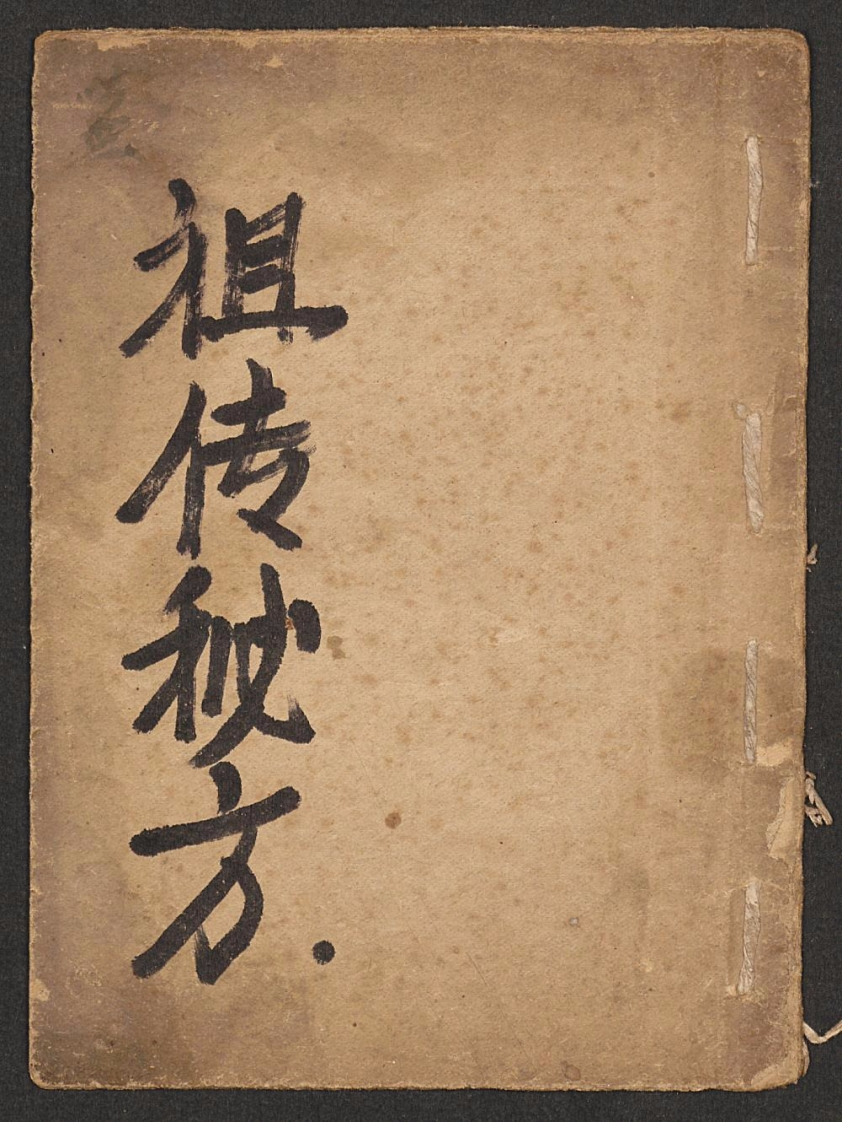 祖传秘方.